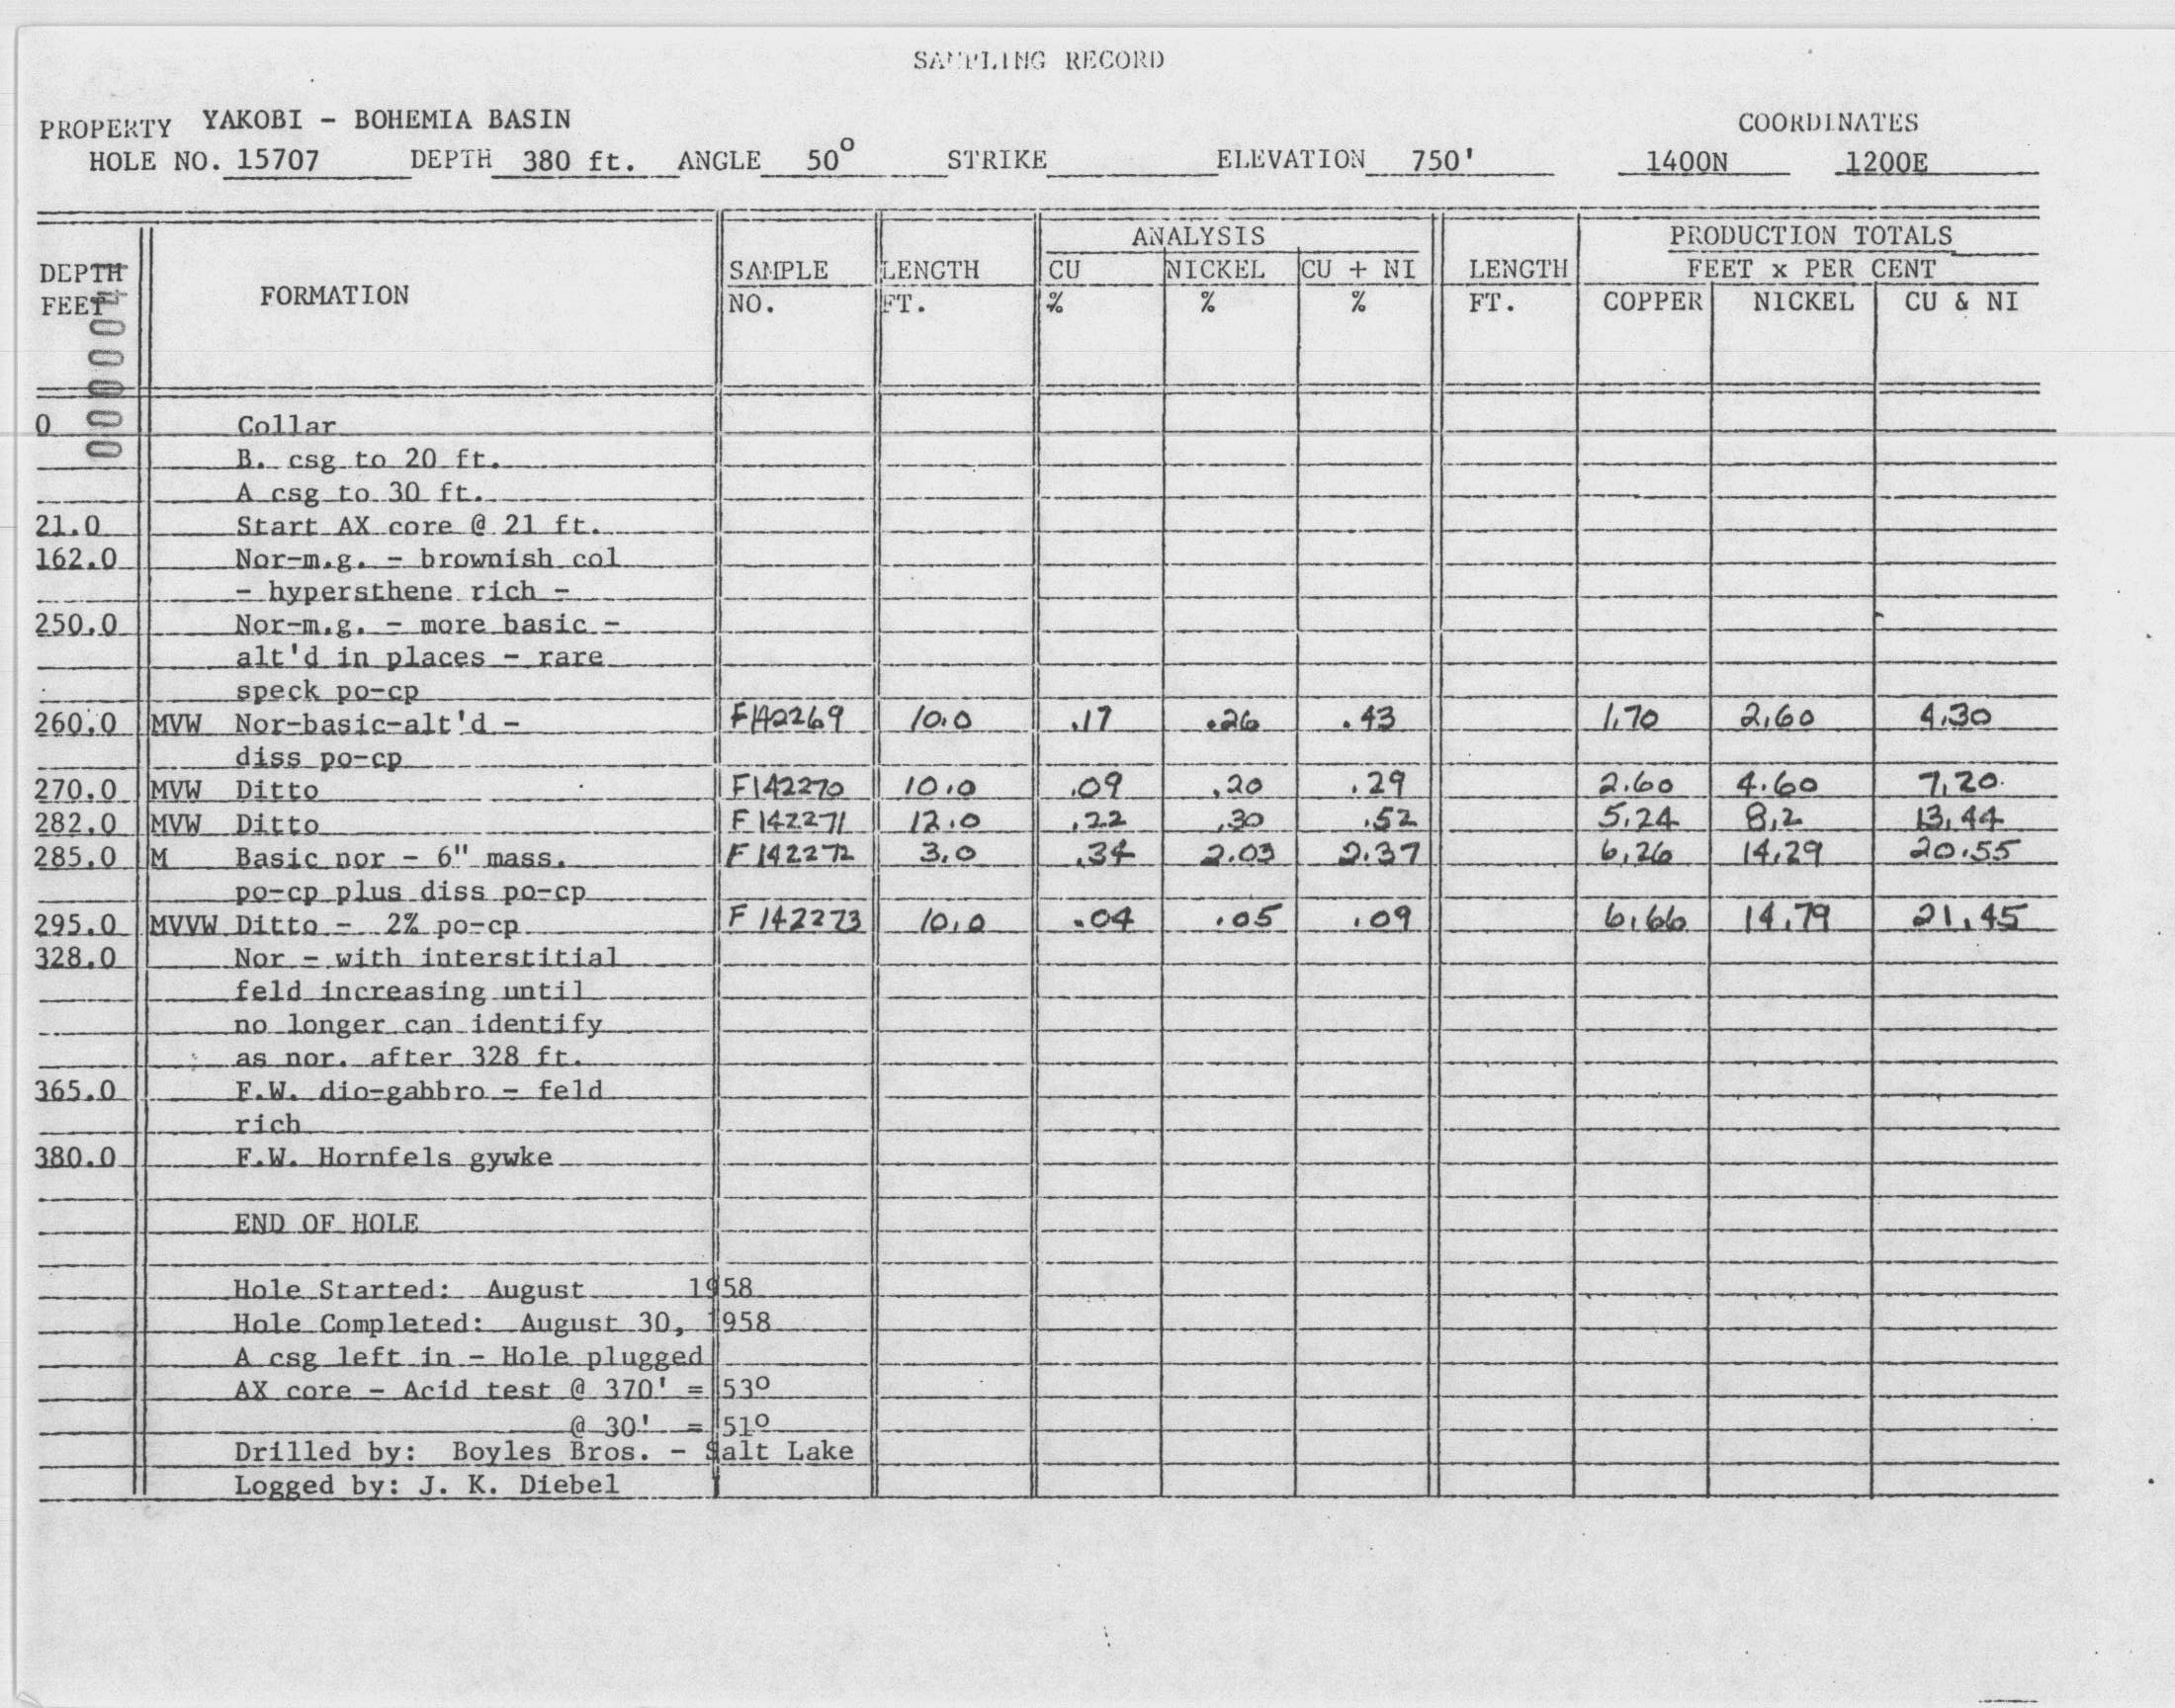 SAMPLING RECORD
PROPERTY YAKOBI - BOHEMIA BASIN COORDINATES
HOLE NO. 15707 DEPTH 380 ft. ANGLE 50° STRIKE ELEVATION 750' 1400N 1200E
ANALYSIS PRODUCTION TOTALS
DEPTH SAMPLE LENGTH CU NICKEL CU + NI LENGTH FEET x PER CENT
FEET FORMATION NO. FT. % % % FT. COPPER NICKEL CU & NI
0 Collar
B. csg to 20 ft.
A csg to 30 ft.
21.0 Start AX core @ 21 ft.
162.0 Nor-m.g. - brownish col
- hypersthene rich -
250.0 Nor-m.g. - more basic -
alt'd in places - rare
speck po-cp
260.0 MVW Nor-basic-alt'd - F142269 10.0 .17 .26 .43 1.70 2.60 4.30
diss po-cp
270.0 MVW Ditto F142270 10.0 .09 .20 .29 2.60 4.60 7.20
282.0 MVW Ditto F142271 12.0 .22 .30 .52 5.24 8.2 13.44
285.0 M Basic nor - 6" mass. F142272 3.0 .34 2.03 2.37 6.26 14.29 20.55
po-cp plus diss po-cp
295.0 MVVW Ditto - 2% po-cp F142273 10.0 .04 .05 .09 6.66 14.79 21.45
328.0 Nor - with interstitial
feld increasing until
no longer can identify
as nor. after 328 ft.
365.0 F.W. dio-gabbro - feld
rich
380.0 F.W. Hornfels gywke
END OF HOLE
Hole Started: August 1958
Hole Completed: August 30, 1958
A csg left in - Hole plugged
AX core - Acid test @ 370' = 53°
@ 30' = 51°
Drilled by: Boyles Bros. - Salt Lake
Logged by: J. K. Diebel